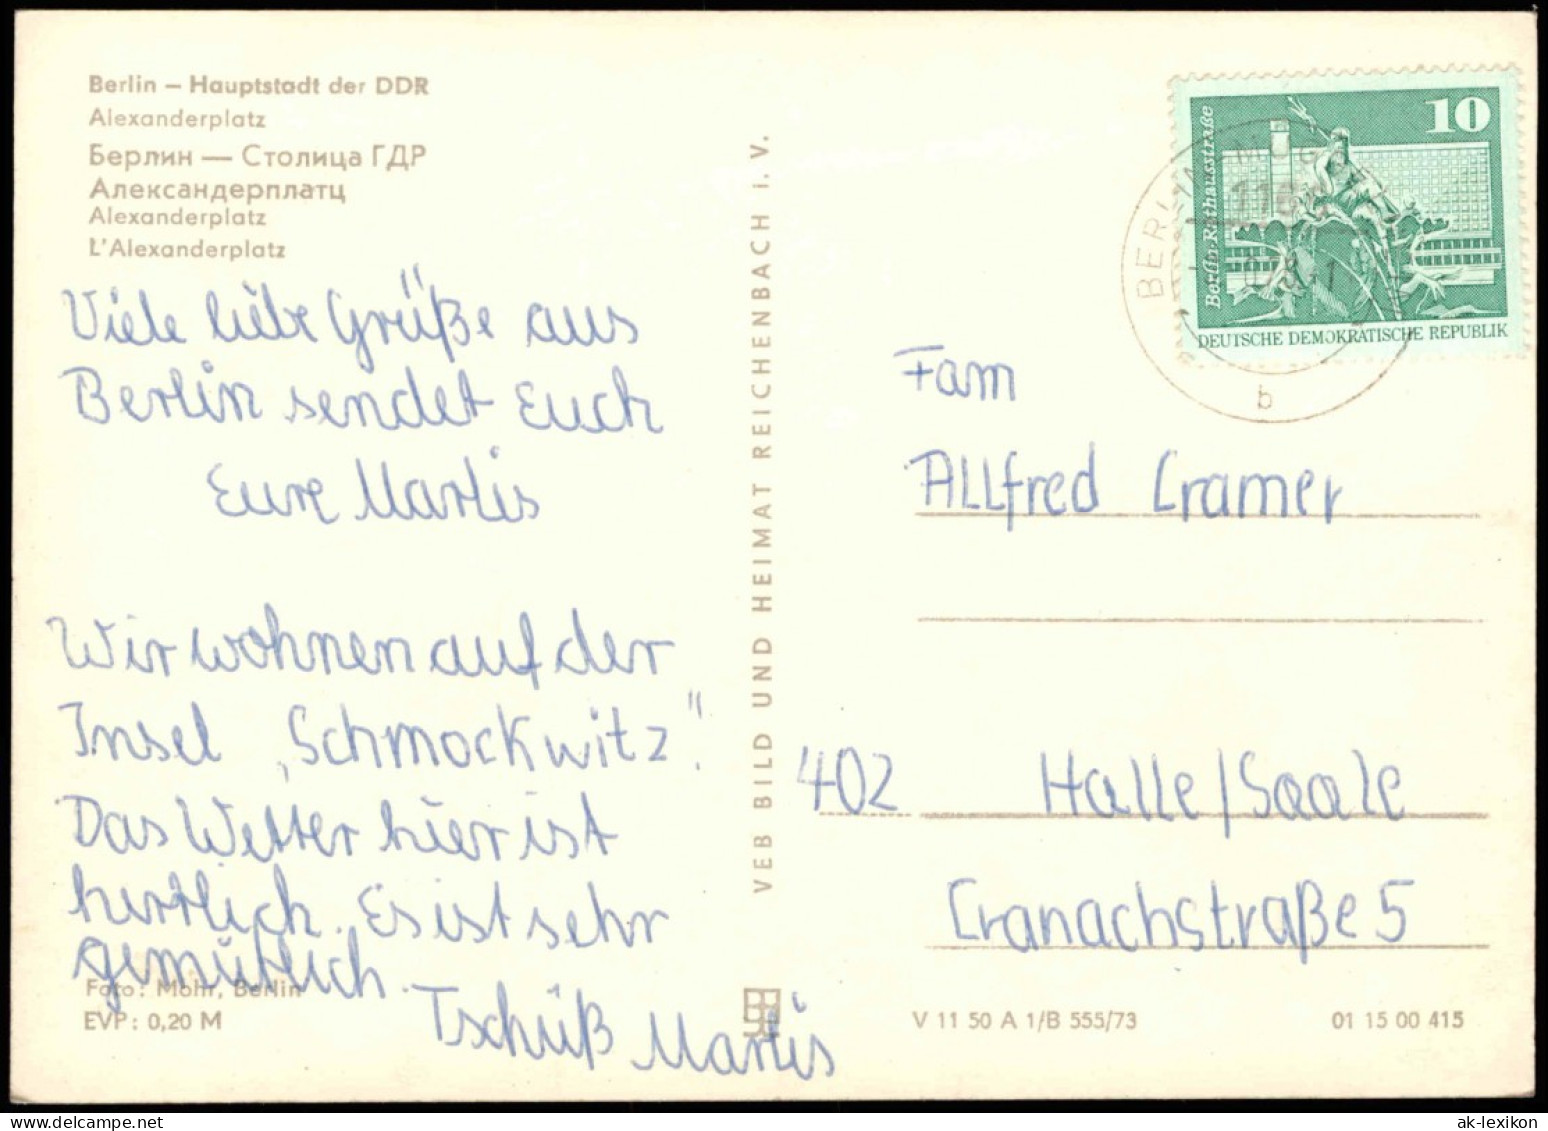 Berlin – Hauptstadt der DDR
Alexanderplatz
Берлин — Столица ГДР
Александерплатц
Alexanderplatz
L'Alexanderplatz
Viele liebe Grüße aus
Berlin sendet Euch
Eure Marlis
Wir wohnen auf der
Insel „Schmockwitz".
Das Wetter hier ist
herrlich. Es ist sehr
gemütlich.
Tschüß Marlis
Foto: Mohr, Berlin
EVP: 0,20 M
VEB BILD UND HEIMAT REICHENBACH i. V.
10
Berlin-Rathausstraße
DEUTSCHE DEMOKRATISCHE REPUBLIK
BERLIN
b
Fam
Allfred Cramer
402 Halle/Saale
Cranachstraße 5
V 11 50 A 1/B 555/73
01 15 00 415
ak-lexikon